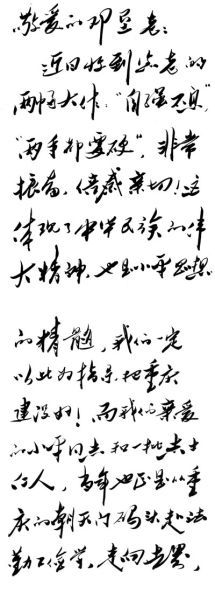 敬爱的邓垦老：
近日收到您老的
两幅大作：“自强不息”，
“两手都要硬”，非常
振奋，倍感亲切！这
体现了中华民族的伟
大精神，也是小平思想
的精髓，我们一定
以此为指导，把重庆
建设好！而我们亲爱
的小平同志和一批老
人，当年也正是从重
庆的朝天门码头赴法
勤工俭学，走向世界，